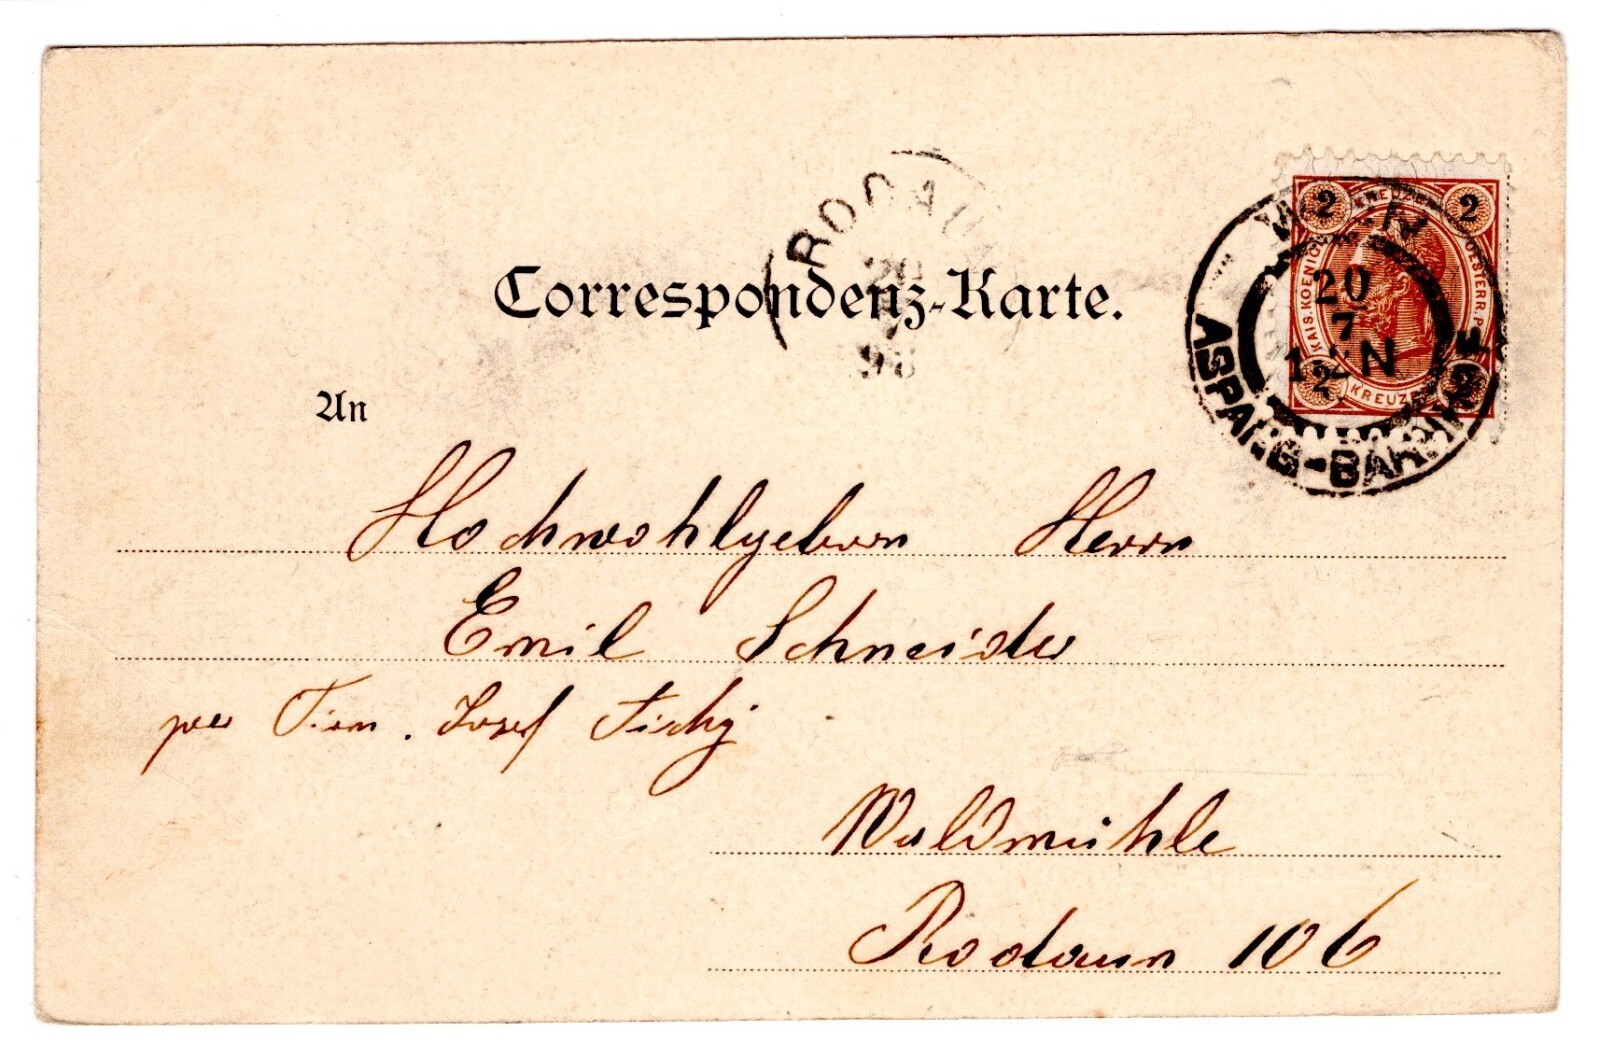 RODAUN
98
Correspondenz-Karte.
2 KREUZER 2
KAIS. KOENIGL. OESTERR. POST
2 KREUZER 2
WIEN
20
7
12N
ASPANG-BAHNHOF
An
Hochwohlgeborn Herrn
Emil Schneider
per Firm. Josef Tichy
Waldmühle
Rodaun 106